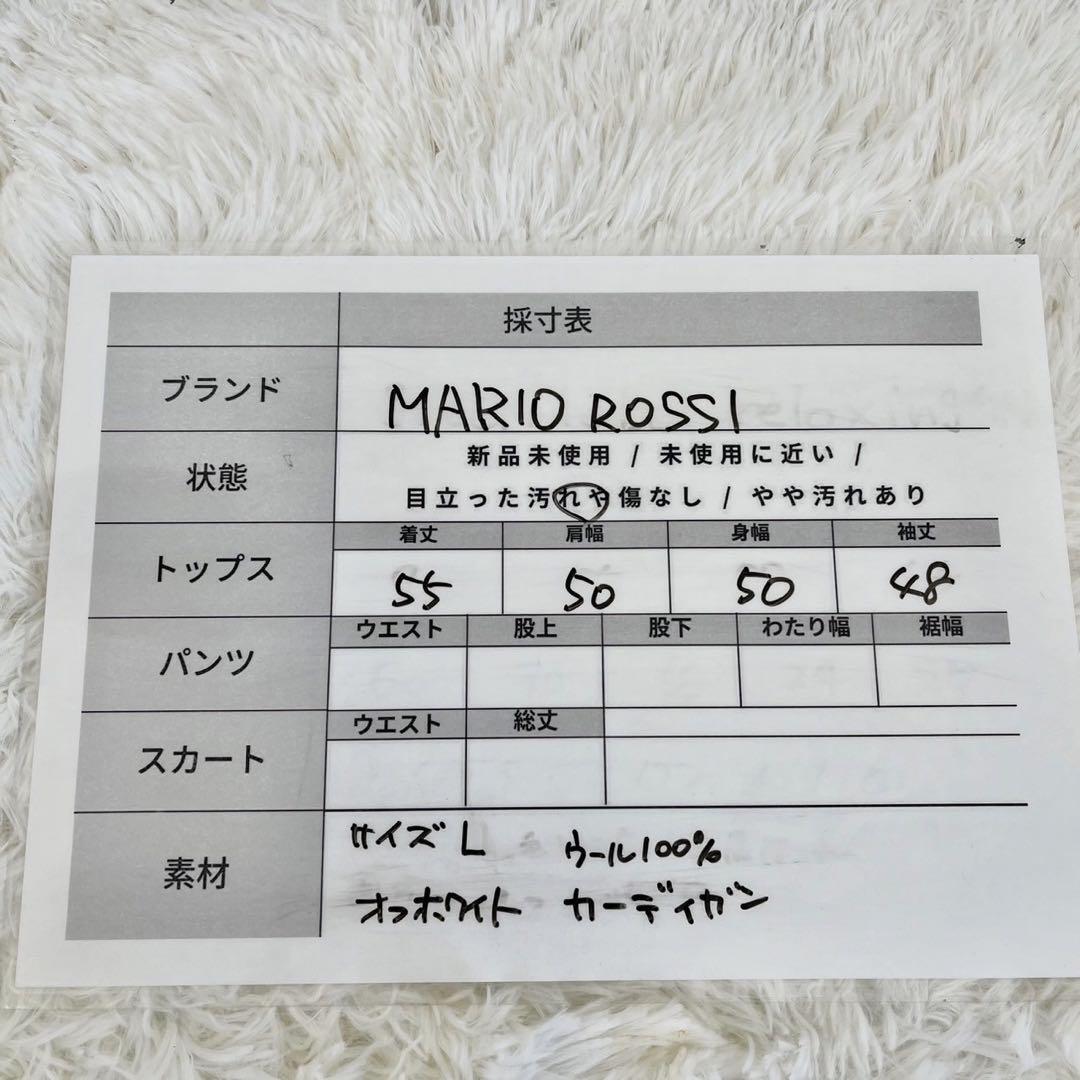 採寸表
ブランド MARIO ROSSI
状態 新品未使用 / 未使用に近い /
目立った汚れや傷なし / やや汚れあり
トップス 着丈 肩幅 身幅 袖丈
55 50 50 48
パンツ ウエスト 股上 股下 わたり幅 裾幅
スカート ウエスト 総丈
素材 サイズL ウール100%
オフホワイト カーディガン